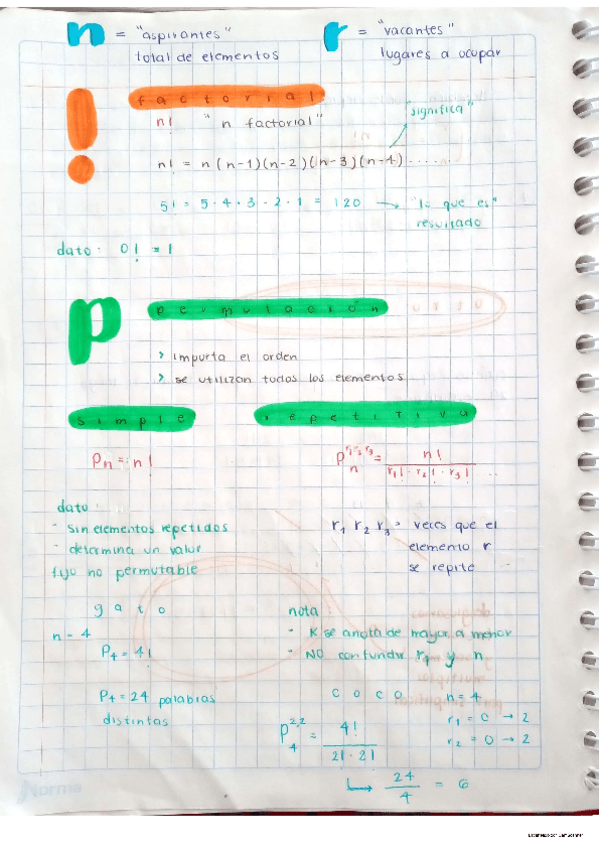 n = "aspirantes" total de elementos
r = "vacantes" lugares a ocupar
! factorial
n! "n factorial"
"significa"
n! = n(n-1)(n-2)(n-3)(n-4)......
5! = 5·4·3·2·1 = 120 → "lo que es" resultado
dato: 0! = 1
P permutación
> importa el orden
> se utilizan todos los elementos
simple
repetitiva
Pn = n!
P n r1 r2 r3 = n! / r1! · r2! · r3! ...
dato:
- sin elementos repetidos
- determina un valor
fijo no permutable
r1 r2 r3 = veces que el
elemento r
se repite
gato
n = 4
P4 = 4!
P4 = 24 palabras
distintas
nota:
- K se anota de mayor a menor
- NO confundir r1 y n
coco n = 4
r1 = c → 2
r2 = o → 2
P 4 2,2 = 4! / 2! · 2!
↳ 24 / 4 = 6
Norma